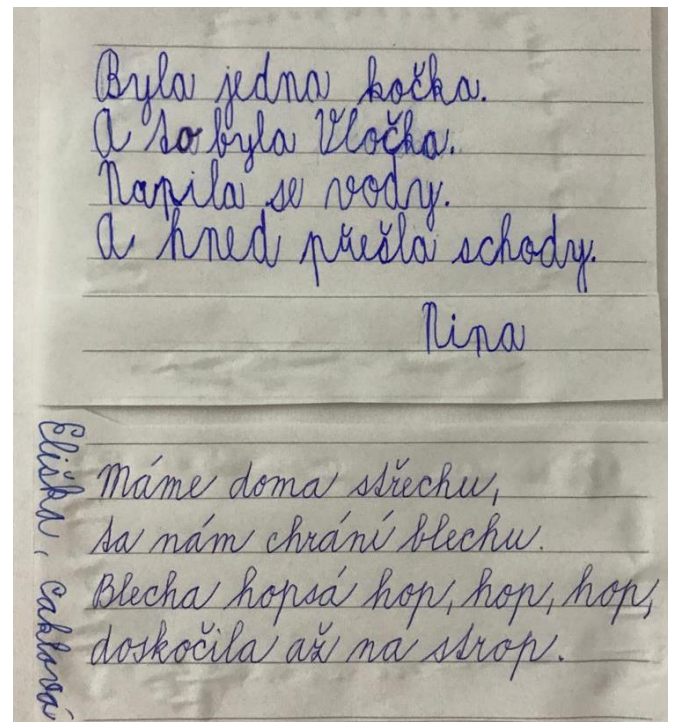 Byla jedna kočka.
A to byla Vločka.
Napila se vody.
A hned přešla schody.
Nina
Máme doma střechu,
ta nám chrání blechu.
Blecha hopsá hop, hop, hop,
doskočila až na strop.
Eliška, Cahlová